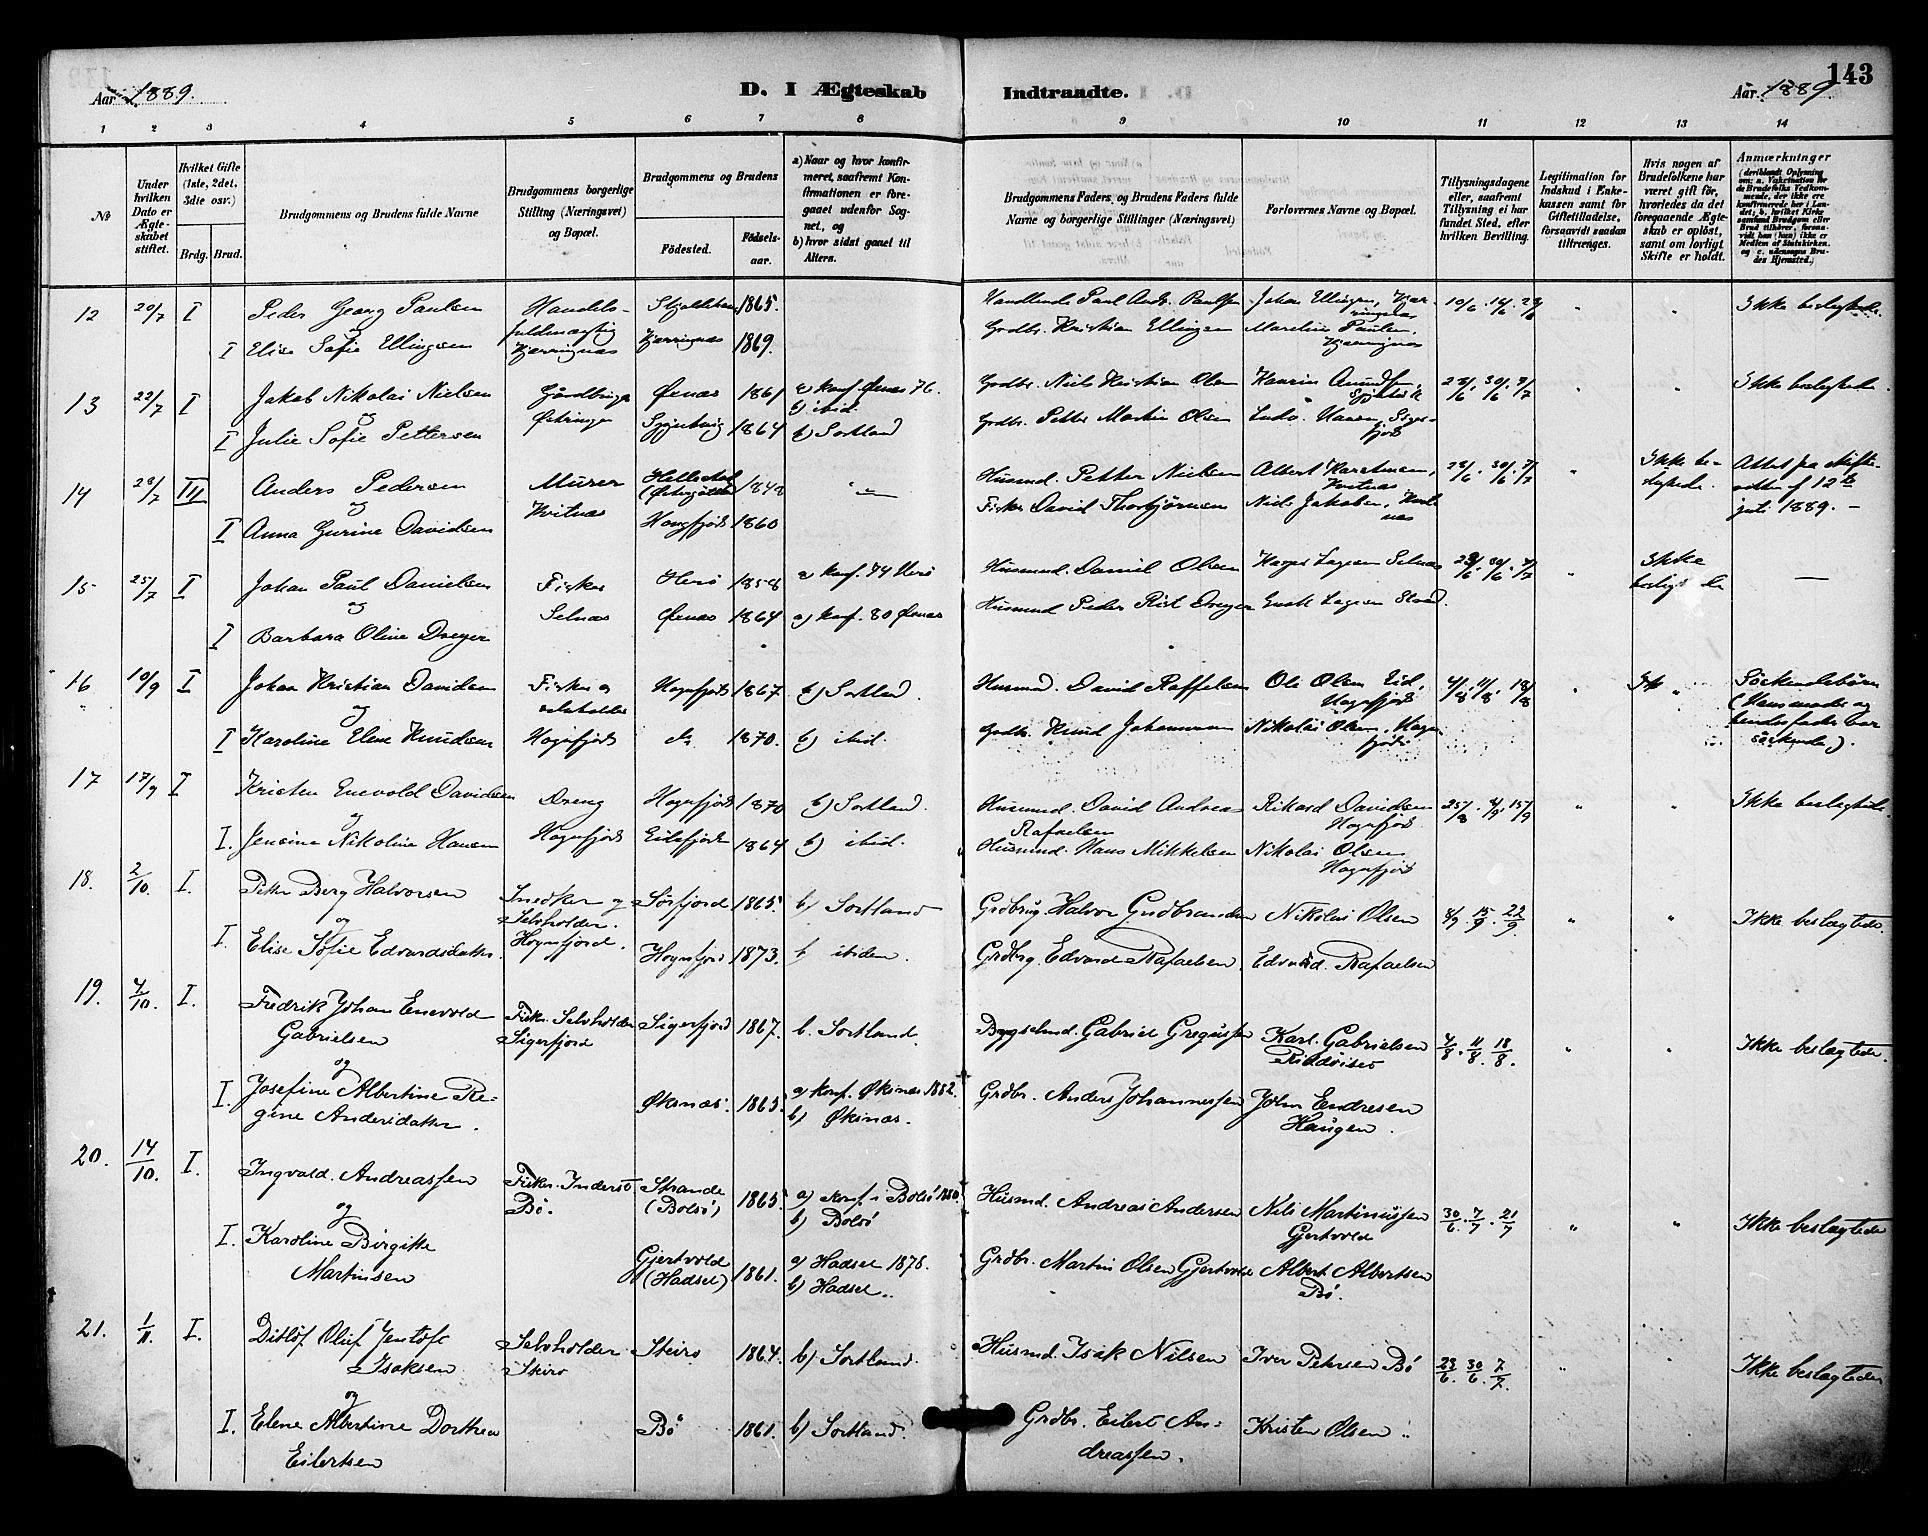 Aar 1889.
D. I Ægteskab
Indtraadte.
Aar 1889
143
1 2 3 4 5 6 7 8
9 10 11 12 13 14
No
Under hvilken Dato er Ægteskabet stiftet.
Hvilket Gifte (1ste, 2det, 3die osv.)
Brdg. Brud.
Brudgommens og Brudens fulde Navne
Brudgommens borgerlige Stilling (Næringsvei) og Bopæl.
Brudgommens og Brudens
Fødested.
Fødselsaar.
a) Naar og hvor konfirmeret, saafremt Konfirmationen er foregaaet udenfor Sognet, og
b) hvor sidst gaaet til Alters.
Brudgommens Faders og Brudens Faders fulde Navne og borgerlige Stillinger (Næringsvei)
Forlovernes Navne og Bopæl.
Tillysningsdagene eller, saafremt Tillysning ei har fundet Sted, efter hvilken Bevilling.
Legitimation for Indskud i Enkekassen samt for Giftetilladelse, forsaavidt saadan tiltrænges.
Hvis nogen af Brudefolkene har været gift før, hvorledes da det foregaaende Ægteskab er opløst, samt om lovligt Skifte er holdt.
Anmærkninger
12 20/7 I Peder Georg Paulsen Handels- 1865. Handlende Paul Andr. Paulsen Johan Ellingsen, 10/6 Ikke beslægtede.
og fuldmægtig
I Elise Sofie Ellingsen Kjerringnæs Kjerringnæs 1869. Grdbr. Kristian Ellingsen Paulsen, Kjerringnæs
13 22/7 I Jakob Nikolai Nielsen Gårdbruger Øxnæs 1861 a) konf. Øxnæs 76. Grdbr. Niels Kristian Olsen 23/6 30/6 7/7 Ikke beslægtede
og b) ibid.
I Julie Sofie Pettersen 1864 b) Sortland Grdbr. Petter Martin Olsen Hansen, Sigerfjord
14 28/7 III Anders Pedersen Murer 1848 Husmd. Petter Nielsen Albert 23/6 30/6 7/7 Ikke beslægtede. Attest fra Skifteretten af 12te
og Kvitnæs Kvitnæs
I Anna Gurine Davidsen Hognfjord 1860 Fisker David Thorbjörnsen Niels Jakobsen, Kvitnæs juli 1889. —
15 25/7 I Johan Paul Danielsen Fisker Herø 1858 a) konf. 74 Herø Husmd. Daniel Olsen Selnæs 23/6 30/6 7/7 Ikke beslægtede —
og Selnæs
I Barbara Oline Dreyer Øxnæs 1864 a) konf. 80 Øxnæs Husmd Peder Rist Dreyer
16 10/9 I Johan Kristian Davidsen Fisker og Hognfjord 1867 b) Sortland. Husmd. David Raffelsen Ole Olsen Eid, 4/8 11/8 18/8 Söskendebörn
og selvholder Hognfjord (Hans moder og
I Karoline Elene Knudsen Hognfjord do 1870. b) ibid. Grdbr. Knud Johannesen Nikolai Olsen, Hognfjord hendes fader var söskende).
17 17/9 I Kristen Enevold Davidsen Dreng Hognfjord 1870 b) Sortland. Husmd. David Andreas Rafaelsen Rikard Davidsen Hognfjord 25/8 15/9 Ikke beslægtede.
og
I. Jensine Nikoline Hansen Hognfjord Eidsfjord 1864 b) ibid. Husmd. Hans Mikkelsen Nikolai Olsen Hognfjord
18. 2/10. I. Peter Berg Halvorsen Snedker og Selvholder. Sörfjord 1865 b) Sortland Grdbrug Halvor Gudbrandsen Nikolai Olsen 8/9 15/9. 22/9 Ikke beslægtede.
og
I. Elise Sofie Edvardsdatter Hognfjord. Hognfjord 1873. b ibidem. Grdbrg. Edvard Rafaelsen. Edvard. Rafaelsen
19. 4/10. I. Fredrik Johan Enevold Gabrielsen Fisker. Selvholder Sigerfjord Sigerfjord 1867. b. Sortland. Bygselmd. Gabriel Gregussen Karl. Gabrielsen 4/8. 11/8. 18/8. Ikke beslægtede.
og
I. Josefine Albertine Regine Andersdatter. Øksnæs. 1865. a) Konf. Øksnæs 1882. b) Øksnæs. Grdbr. Anders Johannessen John Endresen Haugen.
20. 14/10. I. Ingvald. Andreassen Fisker. Bö. Strande (Bolsö) 1865 a) Konf. i Bolsö 1880. b) Bolsö Husmd. Andreas Andersen Nils Martinussen Gjertvold 30/6. 7/7. 21/7 Ikke beslægtede
og
I. Karoline Birgitte Martinsen Gjertvold (Hadsel) 1861. a) Hadsel 1878. b) Hadsel.. Grdbr. Martin Olsen Gjertvold Albert Albertsen Bö.
21. 1/11. I. Ditlöf Oluf Jentoft Isaksen Selvholder Skiro Skiro 1864. b) Sortland. Husmd. Isak Nilsen Iver Petersen Bö 23/6. 30/6. 7/7. Ikke beslægtede
og
I. Elene Albertine Dorthea Eilertsen Bö 1861. b) Sortland. Grdbr. Eilert Andreassen. Kristen Olsen "